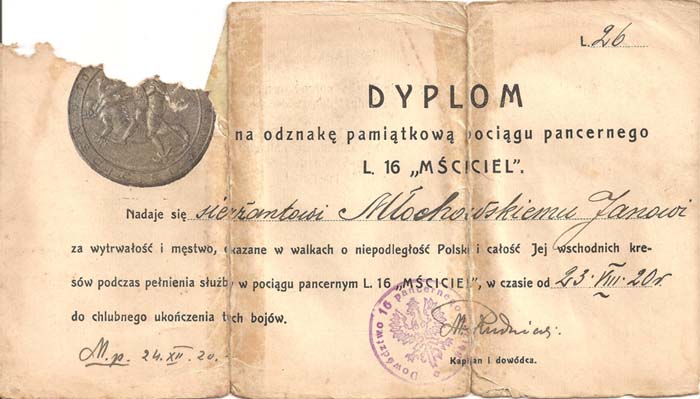 L. 26
DYPLOM
na odznakę pamiątkową pociągu pancernego
L. 16 „MŚCICIEL".
Nadaje się sierżantowi Młochowskiemu Janowi
za wytrwałość i męstwo, okazane w walkach o niepodległość Polski i całość Jej wschodnich kre-
sów podczas pełnienia służby w pociągu pancernym L. 16 „MŚCICIEL", w czasie od 23·VIII·20r.
do chlubnego ukończenia tych bojów.
M.p. 24.XII.20.
Dowództwo 16 pancernego
Kapitan i dowódca.